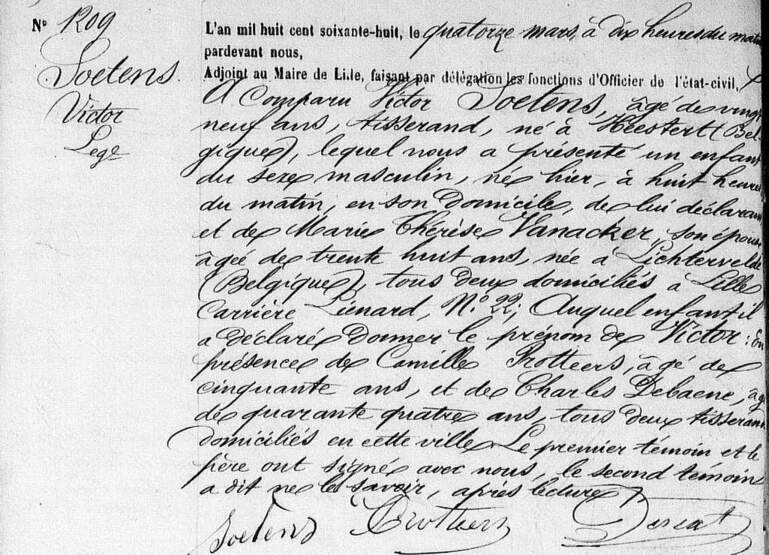 N° 1209
Soetens.
Victor
Lege
L'an mil huit cent soixante-huit, le quatorze mars, à dix heures du matin
pardevant nous,
Adjoint au Maire de Lille, faisant par délégation les fonctions d'Officier de l'état-civil,
A Comparu Victor Soetens, âgé de vingt
neuf ans, tisserand, né à Heestert (Bel
gique), lequel nous a présenté un enfant
du sexe masculin, né hier, à huit heures
du matin, en son domicile, de lui déclarant
et de Marie Thérèse Vanacker, son épouse
âgée de trente huit ans, née à Lichtervelde
(Belgique), tous deux domiciliés à Lille
Carrière Liénard, N° 22; Auquel enfant il
a déclaré donner le prénom de Victor: En
présence de Camille Trotteers, âgé de
cinquante ans, et de Charles Debaene, âg
é de quarante quatre ans, tous deux tisserands
domiciliés en cette ville. Le premier témoin et le
père ont signé avec nous, le second témoin
a dit ne le savoir, après lecture
Soetens